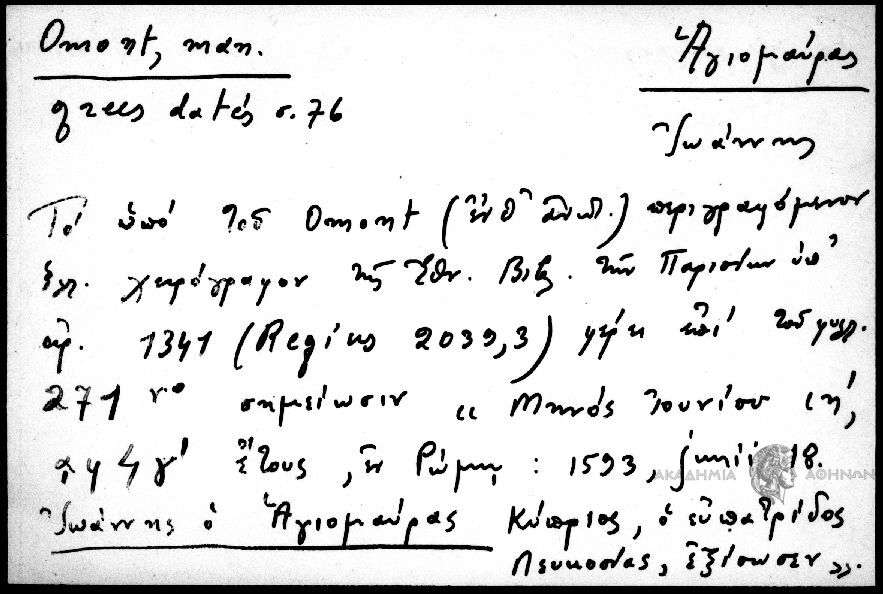 Omont, man.
grecs datés σ. 76
Ἁγιομαύρας
Ἰωάννης
Τὸ ὑπὸ τοῦ Omont (ἔνθ' ἀνωτ.) περιγραφόμενον
ἑλλ. χειρόγραφον τῆς Ἐθν. Βιβλ. τῶν Παρισίων ὑπ'
ἀρ. 1341 (Regius 2039,3) φέρει ἐπὶ τοῦ φυλλ.
271 r° σημείωσιν « Μηνὸς Ἰουνίου ιη',
αφ4γ' ἔτους, ἐν Ρώμῃ : 1593, junii 18.
Ἰωάννης ὁ Ἁγιομαύρας Κύπριος, ὁ εὐπατρίδος
Λευκοσίας, ἐξίσωσεν ».
ΑΚΑΔΗΜΙΑ ΑΘΗΝΩΝ